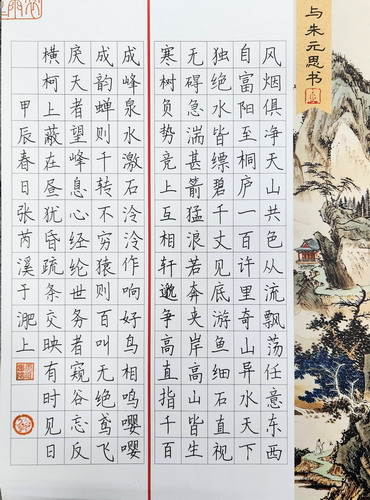 与朱元思书
风烟俱净天山共色从流飘荡任意东西
自富阳至桐庐一百许里奇山异水天下
独绝水皆缥碧千丈见底游鱼细石直视
无碍急湍甚箭猛浪若奔夹岸高山皆生
寒树负势竞上互相轩邈争高直指千百
成峰泉水激石泠泠作响好鸟相鸣嘤嘤
成韵蝉则千转不穷猿则百叫无绝鸢飞
戾天者望峰息心经纶世务者窥谷忘反
横柯上蔽在昼犹昏疏条交映有时见日
甲辰春日张芮溪于淝上